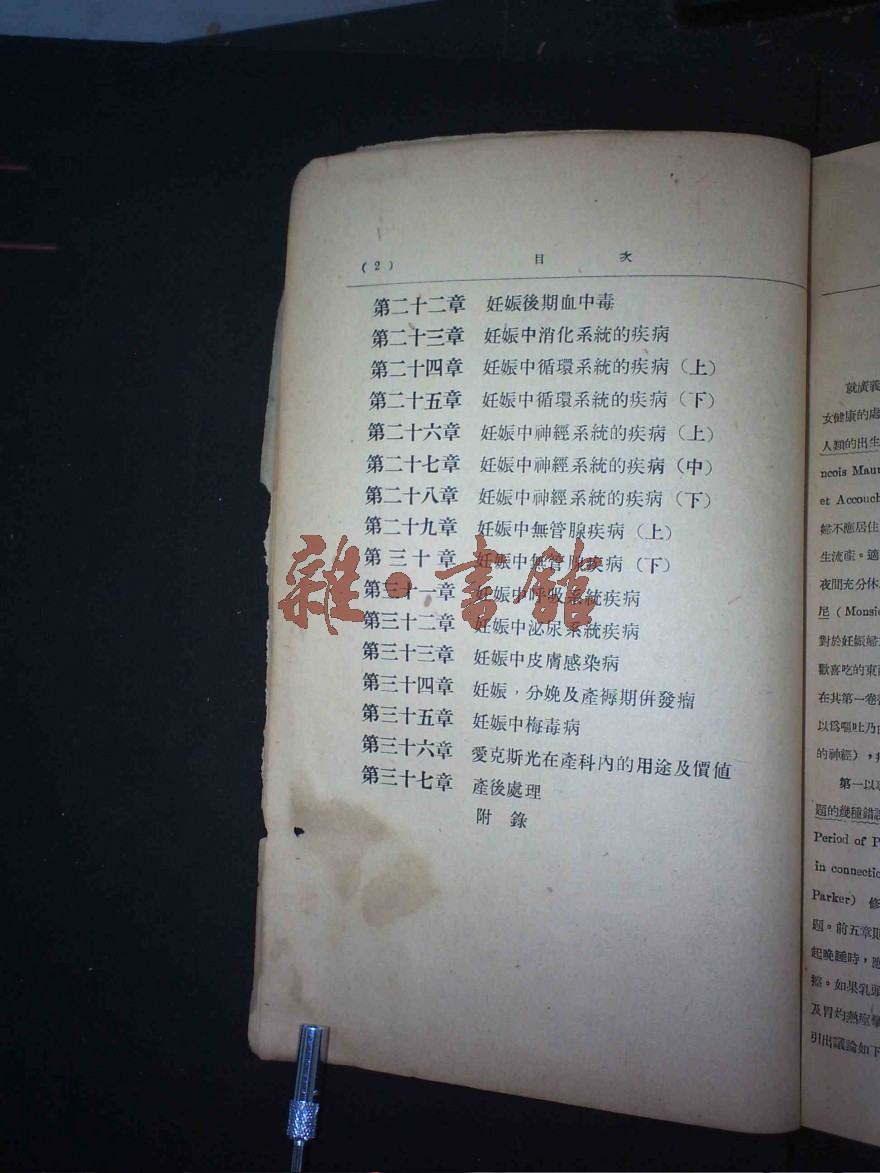 (2) 目 次
第二十二章 妊娠後期血中毒
第二十三章 妊娠中消化系統的疾病
第二十四章 妊娠中循環系統的疾病（上）
第二十五章 妊娠中循環系統的疾病（下）
第二十六章 妊娠中神經系統的疾病（上）
第二十七章 妊娠中神經系統的疾病（中）
第二十八章 妊娠中神經系統的疾病（下）
第二十九章 妊娠中無管腺疾病（上）
第三十章 妊娠中無管腺疾病（下）
第三十一章 妊娠中呼吸系統疾病
第三十二章 妊娠中泌尿系統疾病
第三十三章 妊娠中皮膚感染病
第三十四章 妊娠，分娩及產褥期併發瘤
第三十五章 妊娠中梅毒病
第三十六章 愛克斯光在產科內的用途及價值
第三十七章 產後處理
附 錄
雜·書館
就廣義
女健康的處
人類的出生
ncois Maur
et Accouch
婦不應居住
生流產。適
夜間充分休
尼（Monsie
對於妊娠婦
歡喜吃的東西
在其第一卷
以爲嘔吐乃由
的神經），
第一以
題的幾種錯誤
Period of P
in connectic
Parker） 修
題。前五章則
起晚睡時，應
擦。如果乳頭
及胃灼熱
引出議論如下